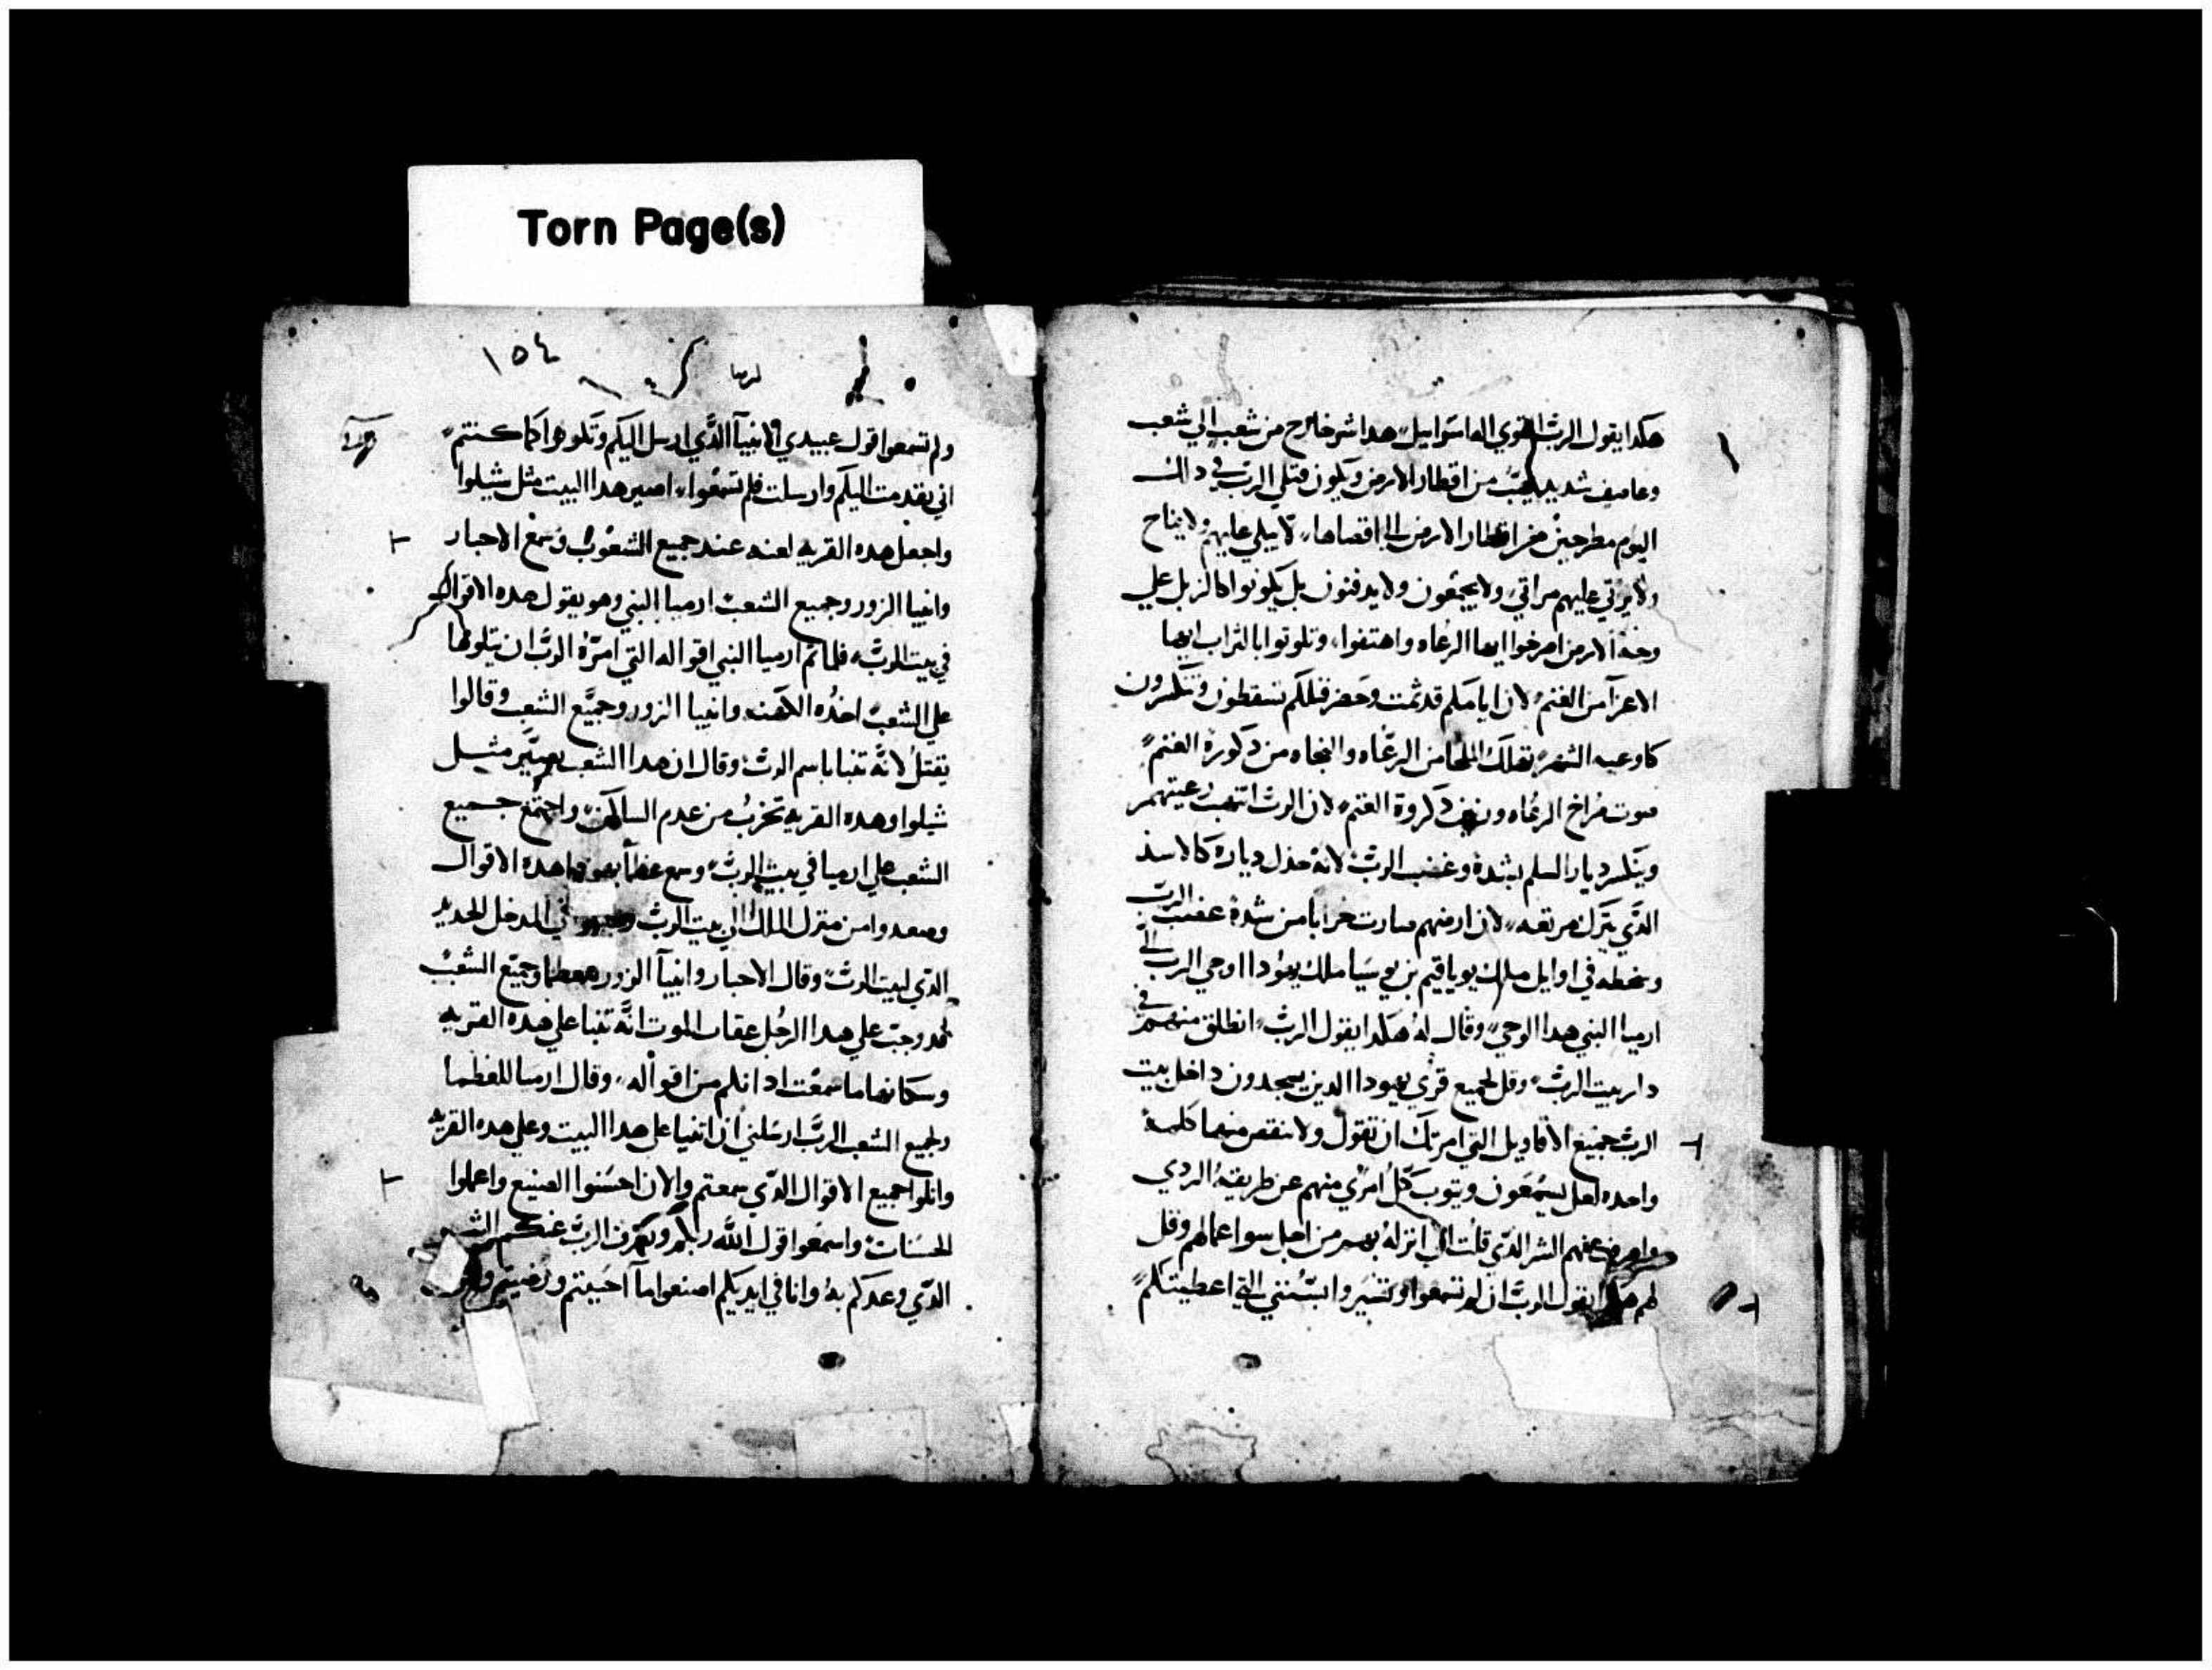 Torn Page(s)
هكدا يقول الرب القوي اله اسراييل هدا شر خارج من شعب الي شعب
وعاصف شديد يهب من اقطار الارض ويكون قتلي الرب في دالك
اليوم مطرحين من اقطار الارض الي اقصاها لا يبكي عليهم ولا يناح
ولا يرتي عليهم مراتي ولا يجمعون ولا يدفنون بل يكونوا كالزبل علي
وجه الارض اصرخوا ايها الرعاه واهتفوا وتلوتوا بالتراب ايها
الاعزا من الغنم لان ايامكم قد تمت وحضر قتلكم تسقطون وتنكسرون
كاوعيه الشهوه يهلك الملجا من الرعاه والنجاه من دكورة الغنم
صوت صراخ الرعاه ودكروة الغنم لان الرب انتهب رعيتهم
وينكسر ديار السلم بشدة وغضب الرب لانه خدل دياره كالاسد
الدي يترك مرتعه لان ارضهم صارت خرابا من شدة غضب الرب
وسخطه في اوايل ملك يوياقيم بن يوسيا ملك يهودا اوحي الرب الي
ارميا النبي هدا الوحي وقال له هكدا يقول الرب انطلق منهم في
دار بيت الرب وقل لجميع قري يهودا الدين يسجدون داخل بيت
الرب جميع الاقاويل التي امرتك ان تقول ولا تنقص منها كلمة
واحده لعل يسمعون ويتوب كل امري منهم عن طريقه الردي
واصرف عنهم الشر الدي قلت اني انزله بهم من اجل سوا اعمالهم وقل
لهم هكدا يقول الرب ان لم تسمعوا وتسيروا بسنتي التي اعطيتكم
١٥٤
ارميا
ولم تسمعوا قول عبيدي الانبيا الدي ارسل اليكم وتكونوا كما كنتم
اني تقدمت اليكم وارسلت فلم تسمعوا اصير هدا البيت مثل شيلوا
واجعل هده القريه لعنه عند جميع الشعوب وسمع الاحبار
وانبيا الزور وجميع الشعب ارميا النبي وهو يقول هده الاقوال
في بيت الرب فلما تم ارميا النبي اقواله التي امره الرب ان يتلوها
علي الشعب اخده الكهنه وانبيا الزور وجميع الشعب وقالوا
يقتل لانه تنبا باسم الرب وقال ان هدا الشعب يصير مثل
شيلوا وهده القريه تخرب من عدم الساكن واجتمع جميع
الشعب علي ارميا في بيت الرب وسمع عظما يهودا هده الاقوال
وصعدوا من منزل الملك الي بيت الرب في المدخل الجديد
الدي لبيت الرب وقال الاحبار وانبيا الزور للعظما وجميع الشعب
قد وجب علي هدا الرجل عقاب الموت انه تنبا علي هده القريه
وسكانها ما سمعت ادانكم من اقواله وقال ارميا للعظما
ولجميع الشعب الرب ارسلني ان اتنبا علي هدا البيت وعلي هده القريه
واتلوا جميع الاقوال الدي سمعتم والان احسنوا الصنيع واعملوا
الحسنات واسمعوا قول الله ربكم ويصرف الرب عنكم الشر
الدي وعدكم به وانا في ايديكم اصنعوا ما احببتم ورضيتم